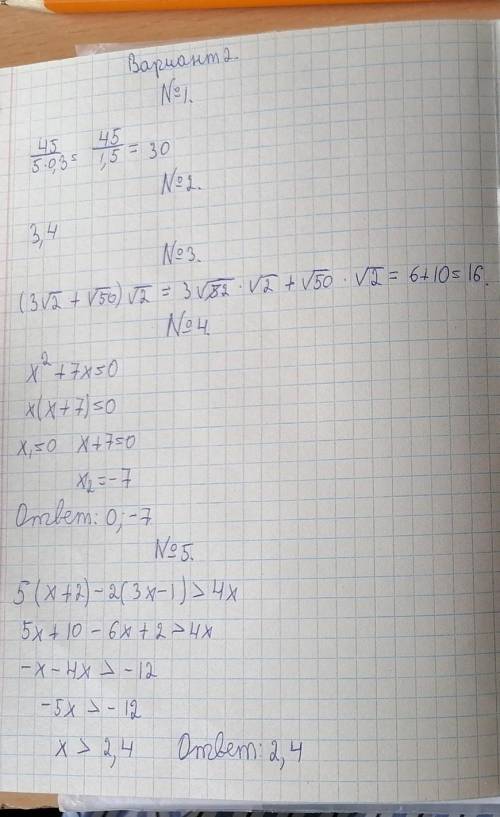 Вариант 2.
№1.
45/5·0,3 = 45/1,5 = 30
№2.
3,4
№3.
(3√2 + √50)√2 = 3√2 · √2 + √50 · √2 = 6+10=16.
№4
x²+7x=0
x(x+7)=0
x₁=0 x+7=0
x₂=-7
Ответ: 0; -7
№5.
5(x+2)-2(3x-1)>4x
5x+10-6x+2>4x
-x-4x>-12
-5x>-12
x>2,4 Ответ: 2,4